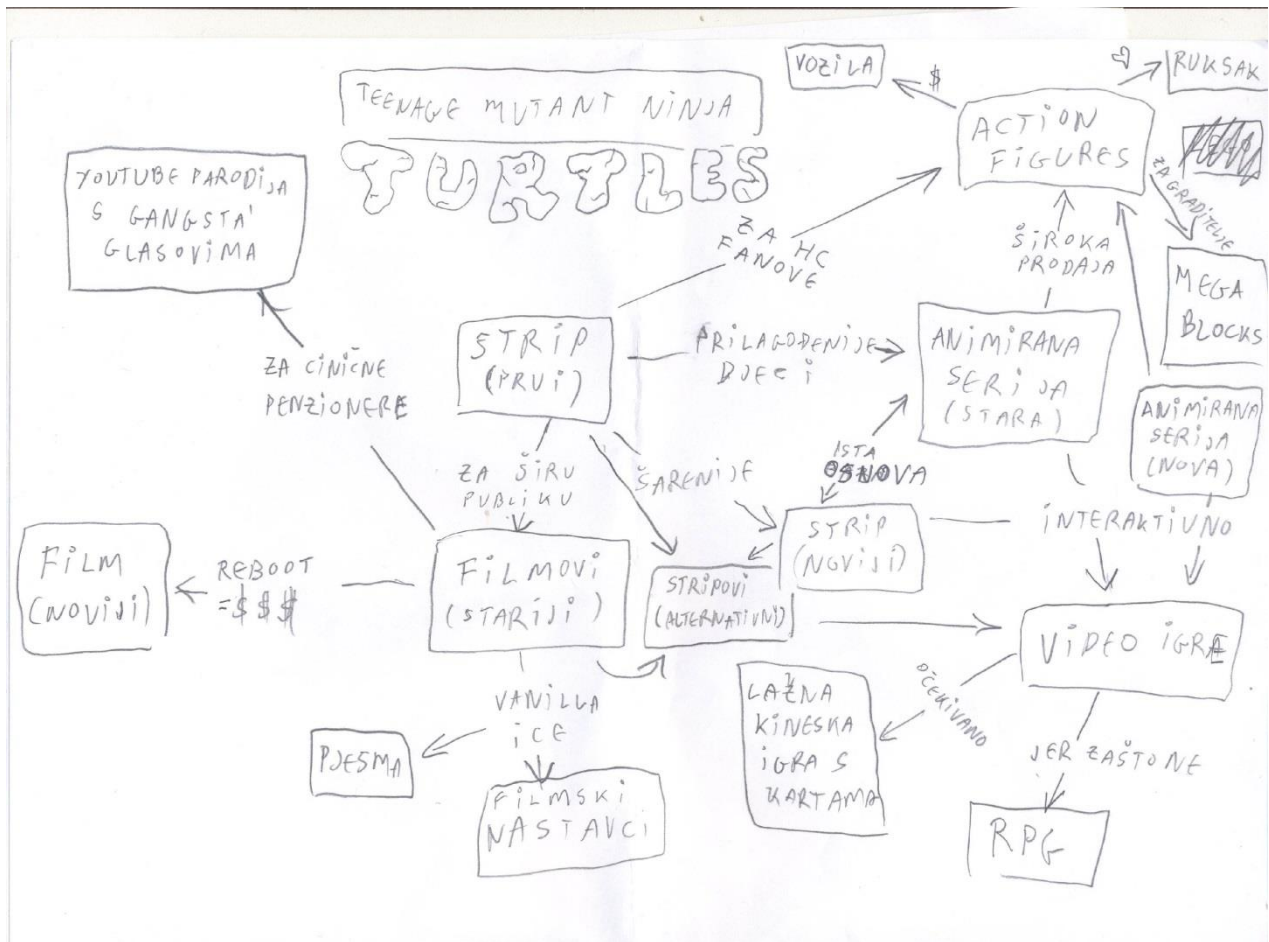 TEENAGE MUTANT NINJA
TURTLES
VOZILA
$
RUKSAK
ACTION
FIGURES
YOUTUBE PARODIJA
S GANGSTA'
GLASOVIMA
ZA HC
FANOVE
ŠIROKA
PRODAJA
ZA GRADITELJE
MEGA
BLOCKS
STRIP
(PRVI)
PRILAGOĐENIJE
DJECI
ANIMIRANA
SERIJA
(STARA)
ANIMIRANA
SERIJA
(NOVA)
ZA CINIČNE
PENZIONERE
ZA ŠIRU
PUBLIKU
ŠARENIJE
ISTA
OSNOVA
STRIP
(NOVIJI)
INTERAKTIVNO
FILM
(NOVIJI)
REBOOT
=$$$
FILMOVI
(STARIJI)
STRIPOVI
(ALTERNATIVNI)
VIDEO IGRE
VANILLA
ICE
PJESMA
FILMSKI
NASTAVCI
LAŽNA
KINESKA
IGRA S
KARTAMA
OČEKIVANO
JER ZAŠTO NE
RPG